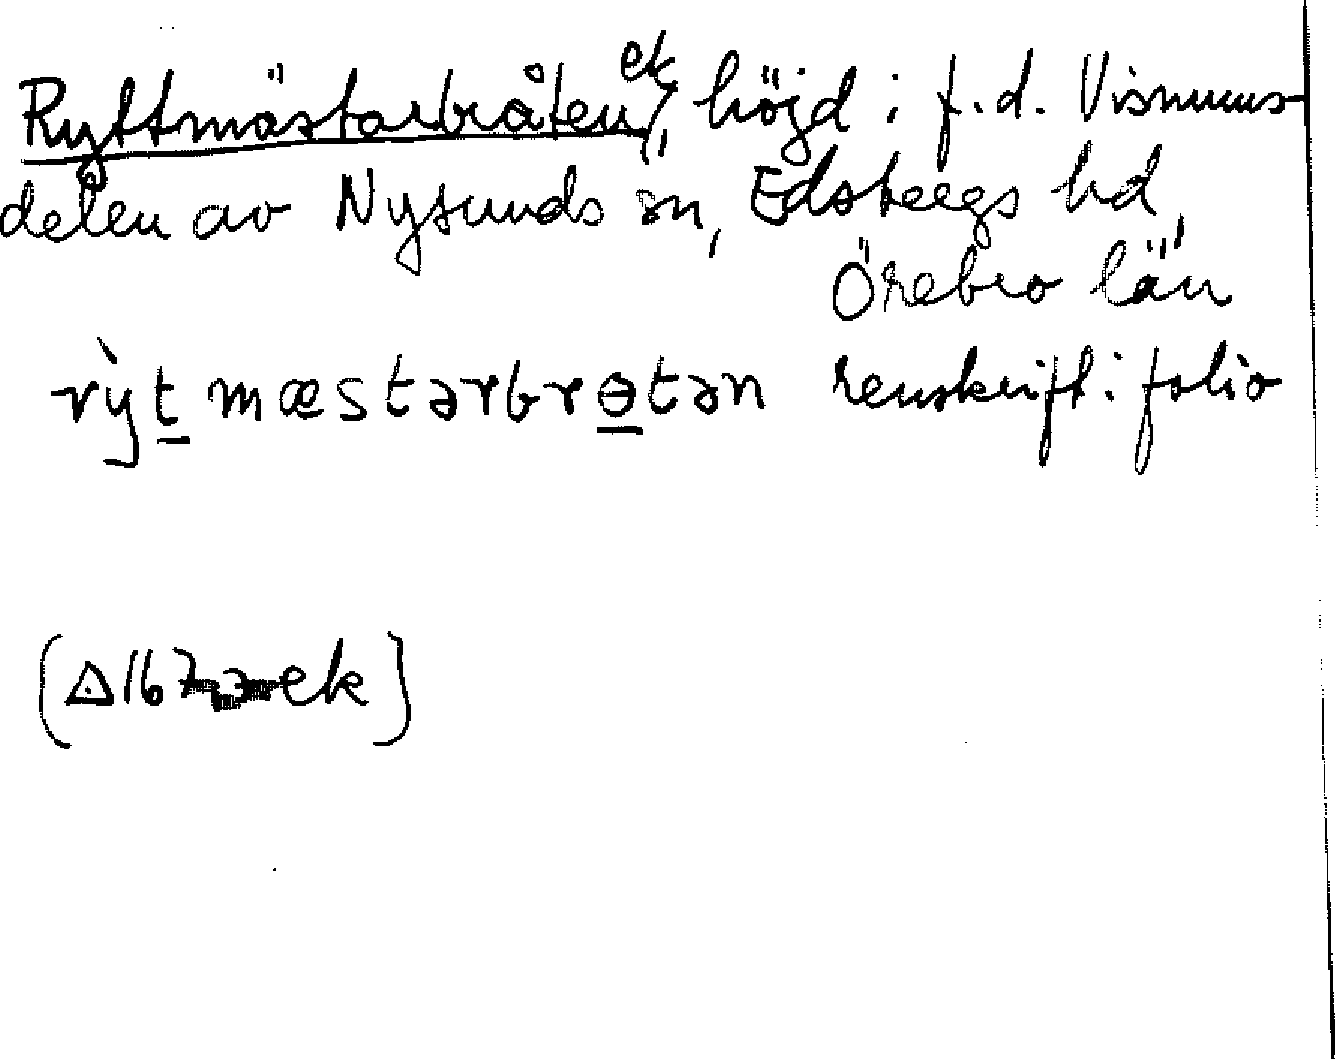 Ryttmästarbråten, ek, höjd i f.d. Visnums-
delen av Nysunds sn, Edsbergs hd,
Örebro län
rỳt mæstərbrɵtən renskrift i folio
(△167 ek)